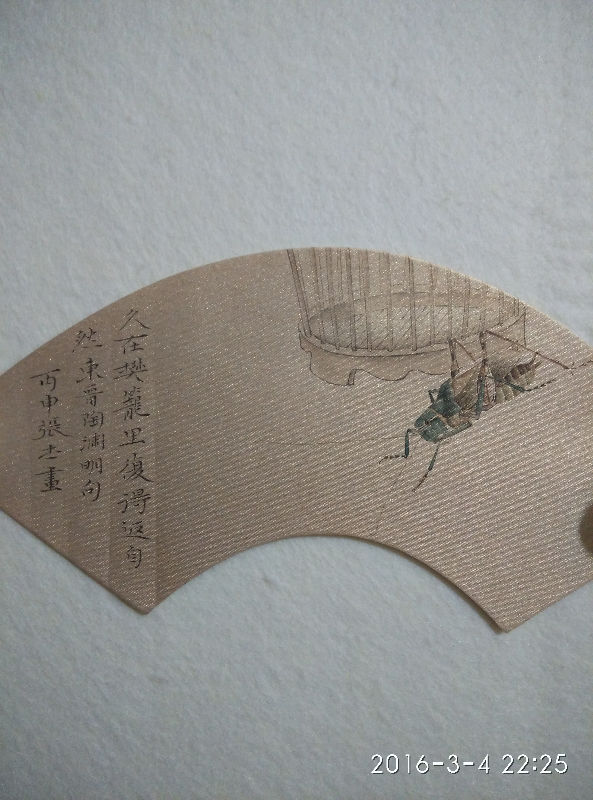 久在樊籠里復得返自
然東晉陶渊明句
丙申張士畫
2016-3-4 22:25